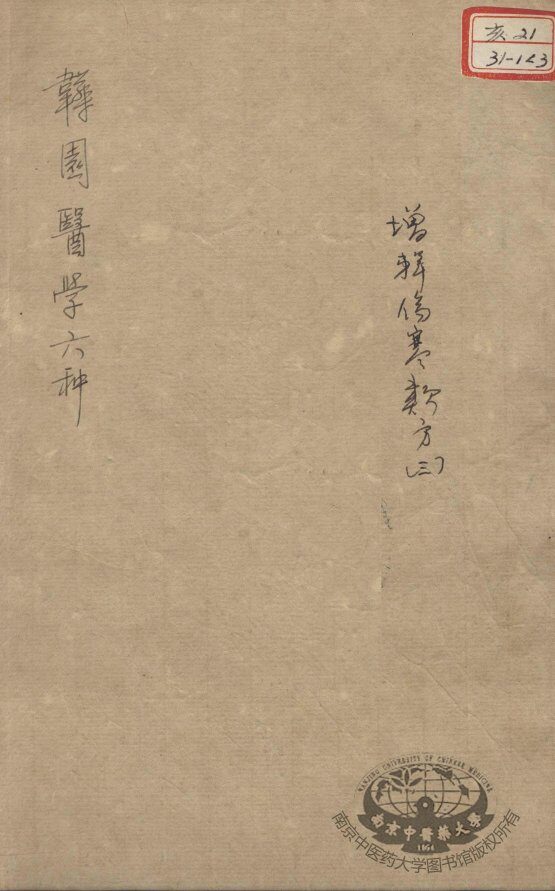 亥21
31-123
韡園醫学六种
增輯傷寒類方(三)
NANJING UNIVERSITY OF CHINESE MEDICINE
南京中醫藥大學
1954
南京中医药大学图书馆版权所有